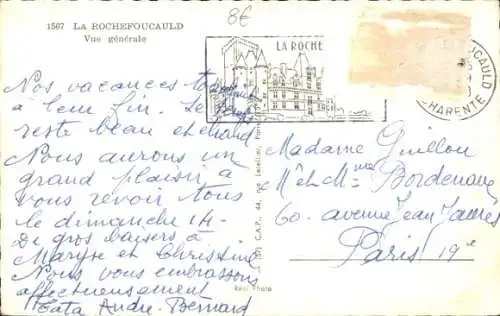 1567 LA ROCHEFOUCAULD
Vue générale
8€
LA ROCHE
CHARENTE
Nos vacances
à leur fin. Le
reste beau et chaud
Nous aurons un
grand plaisir à
vous revoir tous
le dimanche 14.
De gros baisers à
Maryse et Christine
Nous vous embrassons
affectueusement
Tata André-Bernard
Madame Guillou
Mr et Mme Bordenave
60. avenue Jean Jaurès
Paris 19e
Réal. Photo
C.A.P., 44, rue Letellier, Paris